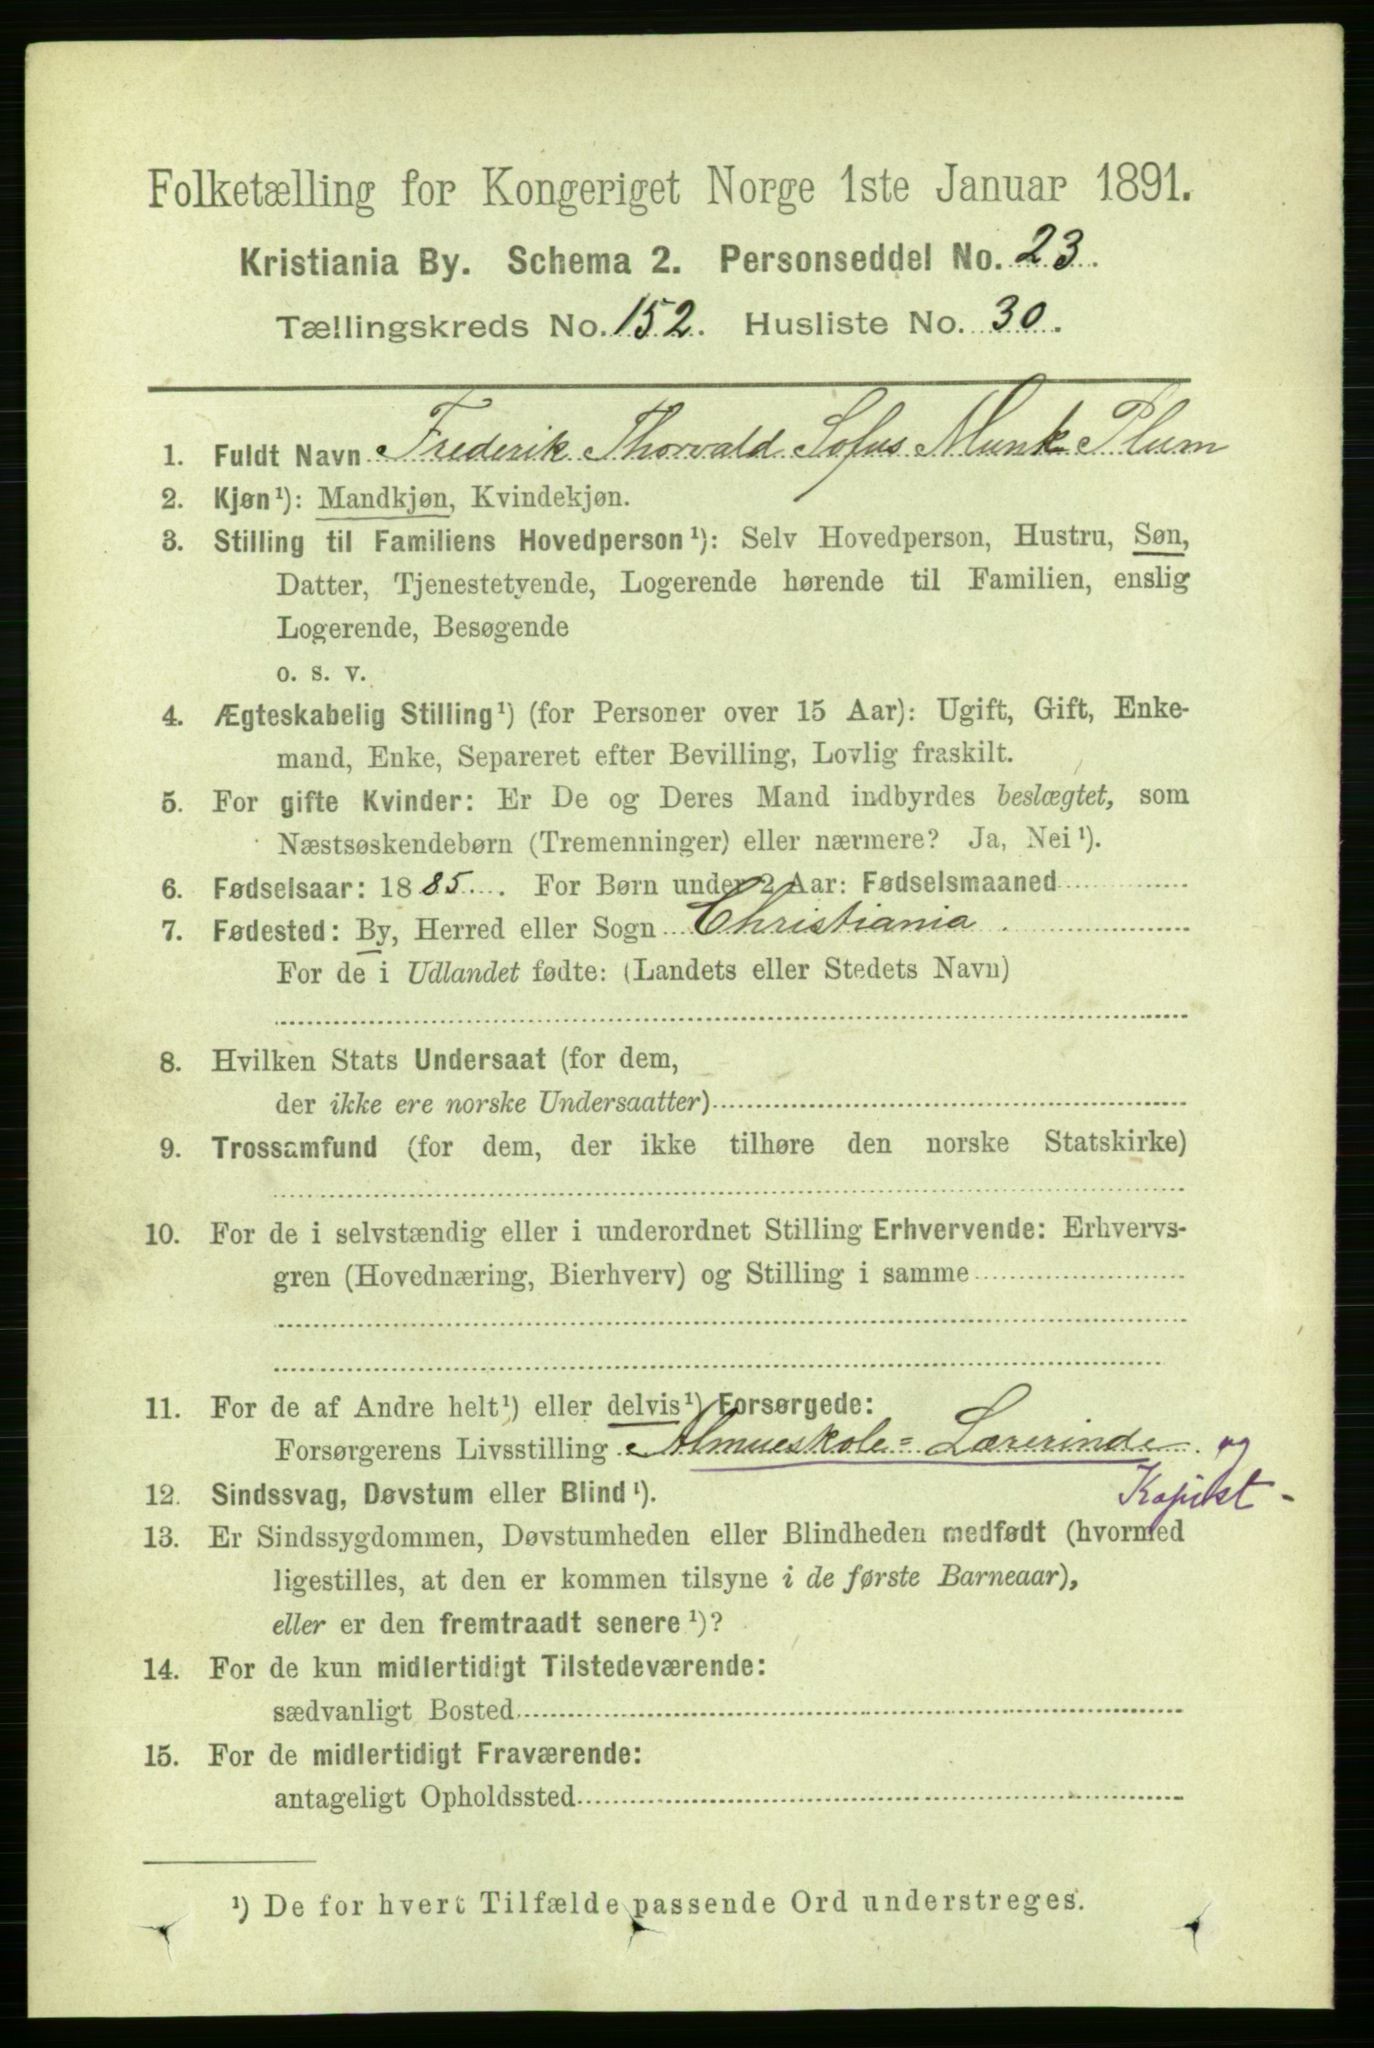 Folketælling for Kongeriget Norge 1ste Januar 1891.
Kristiania By. Schema 2. Personseddel No. 23.
Tællingskreds No. 152. Husliste No. 30.
1. Fuldt Navn Frederik Thorvald Sofus Munk Plum
2. Kjøn¹): Mandkjøn, Kvindekjøn.
3. Stilling til Familiens Hovedperson¹): Selv Hovedperson, Hustru, Søn,
Datter, Tjenestetyende, Logerende hørende til Familien, enslig
Logerende, Besøgende
o. s. v.
4. Ægteskabelig Stilling¹) (for Personer over 15 Aar): Ugift, Gift, Enke-
mand, Enke, Separeret efter Bevilling, Lovlig fraskilt.
5. For gifte Kvinder: Er De og Deres Mand indbyrdes beslægtet, som
Næstsøskendebørn (Tremenninger) eller nærmere? Ja, Nei¹).
6. Fødselsaar: 1885. For Børn under 2 Aar: Fødselsmaaned
7. Fødested: By, Herred eller Sogn Christiania.
For de i Udlandet fødte: (Landets eller Stedets Navn)
8. Hvilken Stats Undersaat (for dem,
der ikke ere norske Undersaatter)
9. Trossamfund (for dem, der ikke tilhøre den norske Statskirke)
10. For de i selvstændig eller i underordnet Stilling Erhvervende: Erhvervs-
gren (Hovednæring, Bierhverv) og Stilling i samme
11. For de af Andre helt¹) eller delvis¹) Forsørgede:
Forsørgerens Livsstilling Almueskole=Lærerinde og
Kopist-
12. Sindssvag, Døvstum eller Blind¹).
13. Er Sindssygdommen, Døvstumheden eller Blindheden medfødt (hvormed
ligestilles, at den er kommen tilsyne i de første Barneaar),
eller er den fremtraadt senere¹)?
14. For de kun midlertidigt Tilstedeværende:
sædvanligt Bosted
15. For de midlertidigt Fraværende:
antageligt Opholdssted
¹) De for hvert Tilfælde passende Ord understreges.